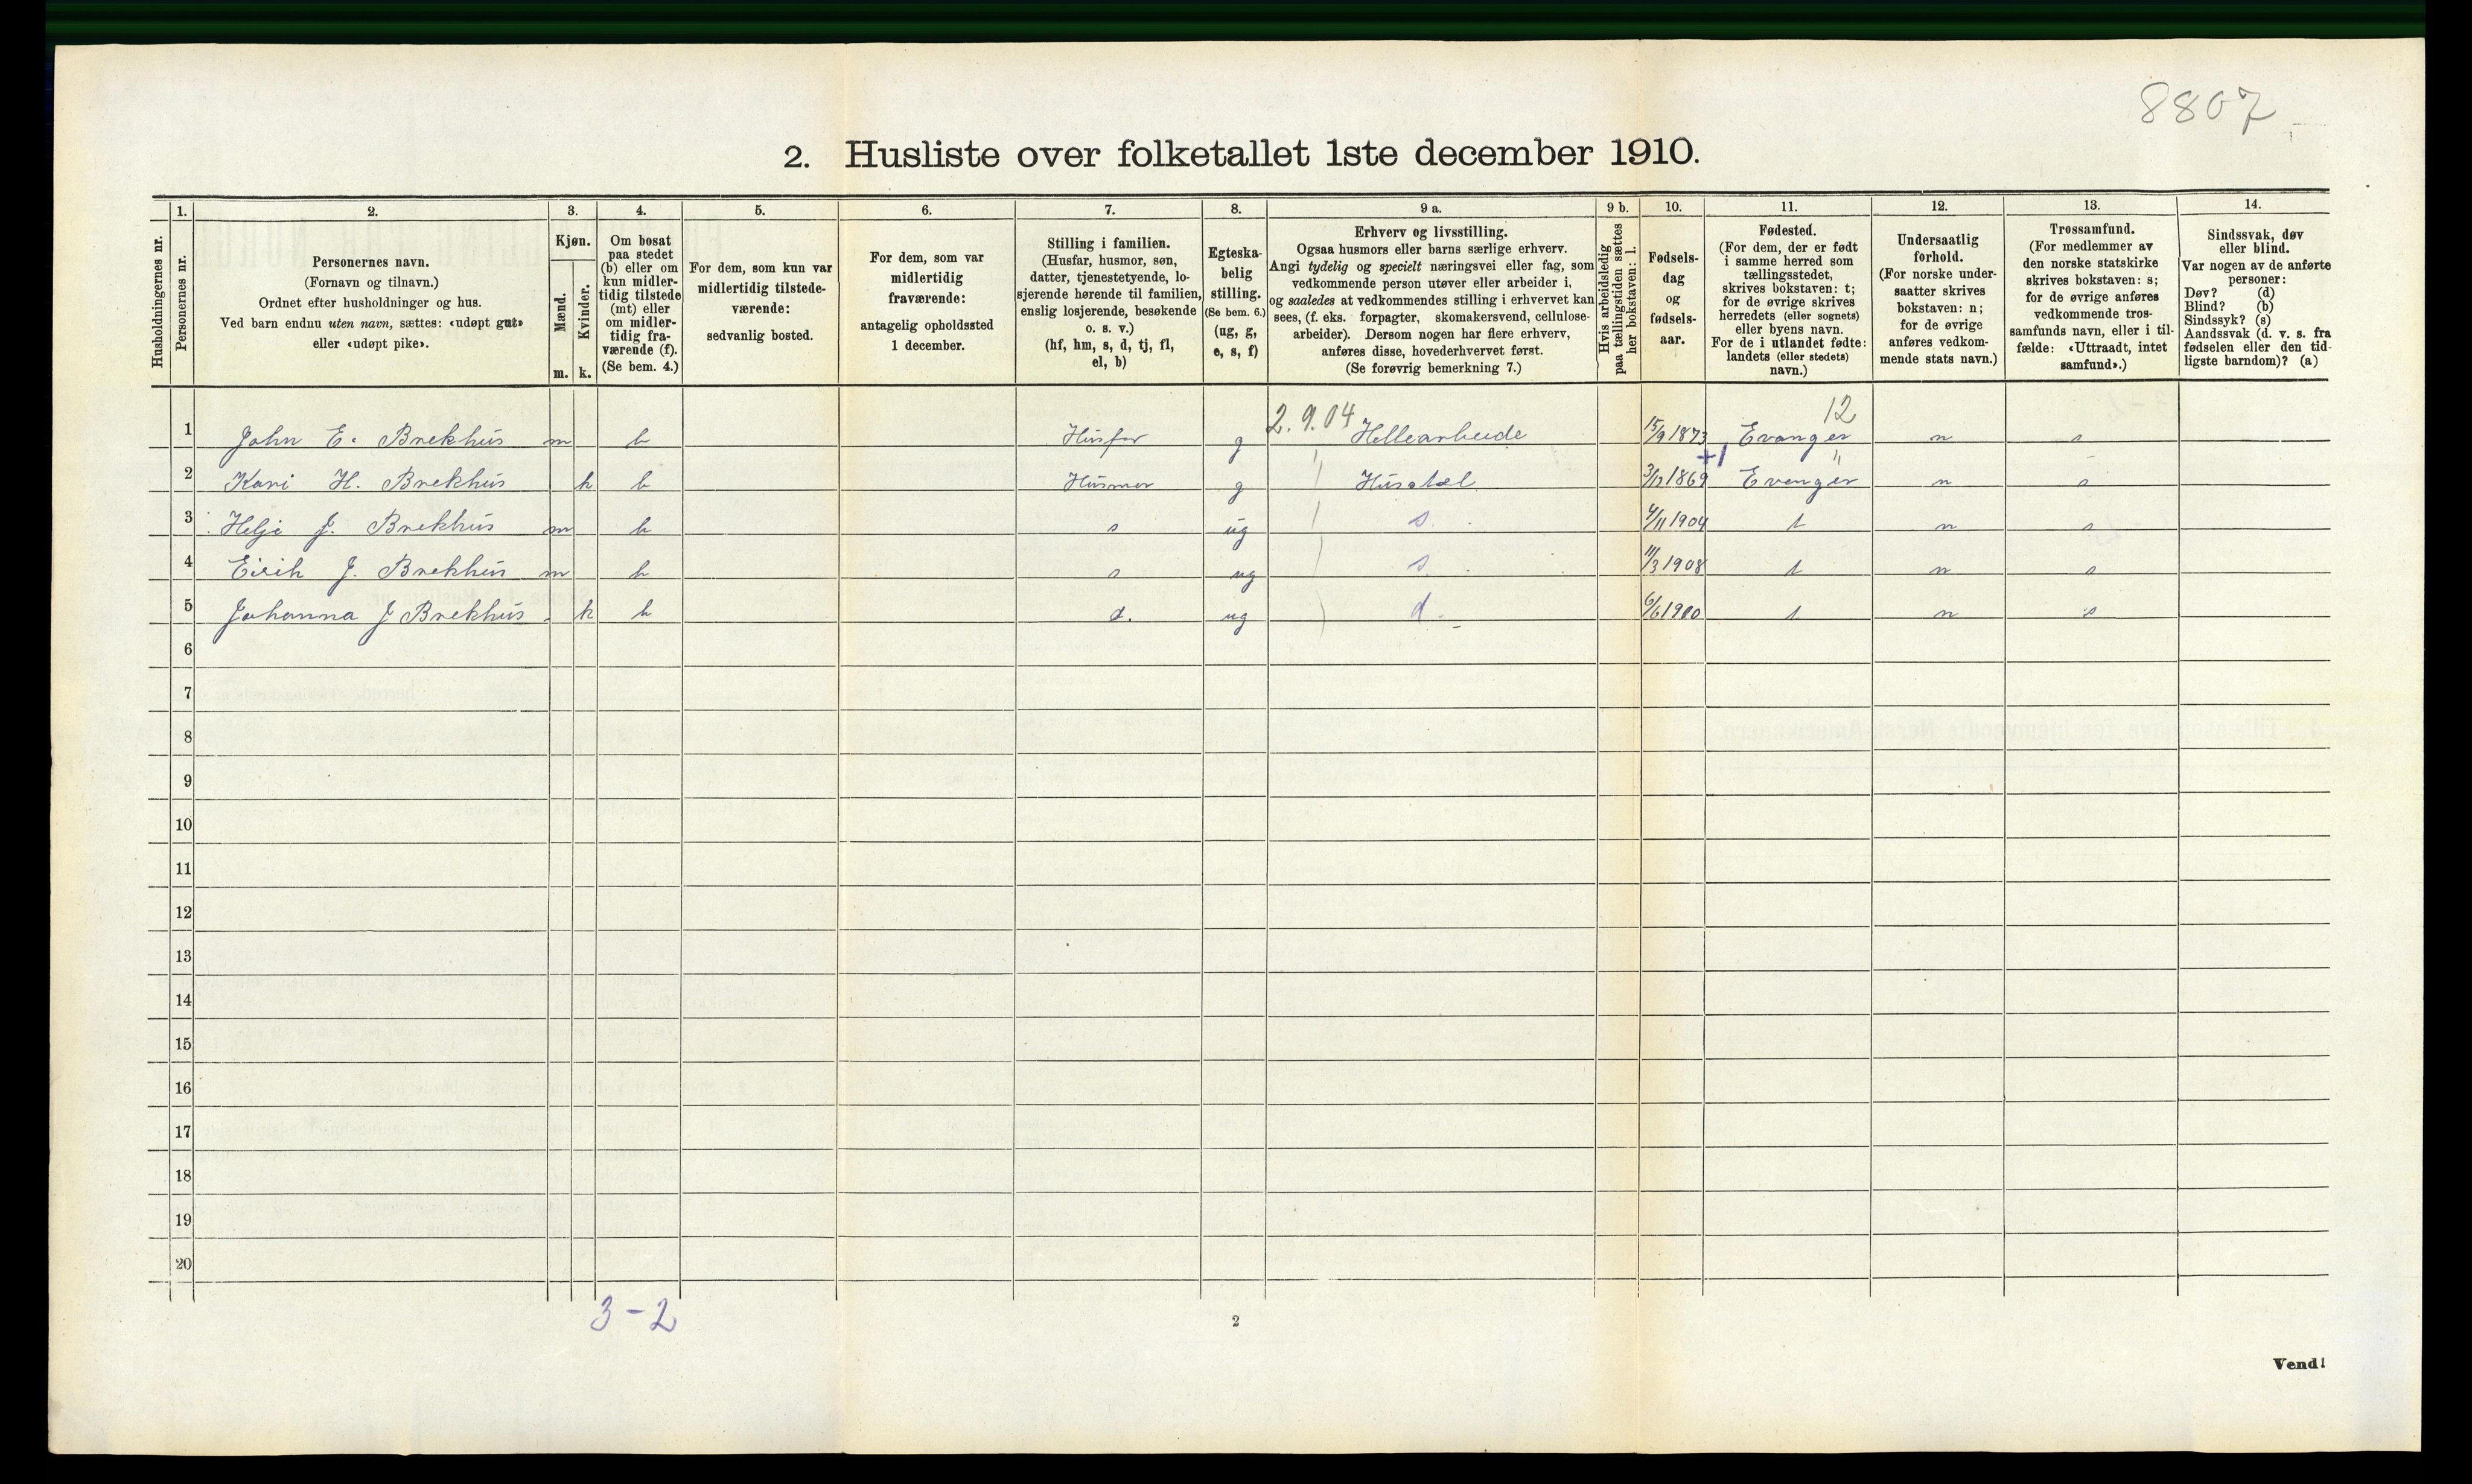 8807
2. Husliste over folketallet 1ste december 1910.
Husholdningernes nr.
1.
Personernes nr.
2.
Personernes navn.
(Fornavn og tilnavn.)
Ordnet efter husholdninger og hus.
Ved barn endnu uten navn, sættes: «udøpt gut»
eller «udøpt pike».
3.
Kjøn.
Mænd.
Kvinder.
m. k.
4.
Om bosat
paa stedet
(b) eller om
kun midler-
tidig tilstede
(mt) eller
om midler-
tidig fra-
værende (f).
(Se bem. 4.)
5.
For dem, som kun var
midlertidig tilstede-
værende:
sedvanlig bosted.
6.
For dem, som var
midlertidig
fraværende:
antagelig opholdssted
1 december.
7.
Stilling i familien.
(Husfar, husmor, søn,
datter, tjenestetyende, lo-
sjerende hørende til familien,
enslig losjerende, besøkende
o. s. v.)
(hf, hm, s, d, tj, fl,
el, b)
8.
Egteska-
belig
stilling.
(Se bem. 6.)
(ug, g,
e, s, f)
9 a.
Erhverv og livsstilling.
Ogsaa husmors eller barns særlige erhverv.
Angi tydelig og specielt næringsvei eller fag, som
vedkommende person utøver eller arbeider i,
og saaledes at vedkommendes stilling i erhvervet kan
sees, (f. eks. forpagter, skomakersvend, cellulose-
arbeider). Dersom nogen har flere erhverv,
anføres disse, hovederhvervet først.
(Se forøvrig bemerkning 7.)
9 b.
Hvis arbeidsledig
paa tællingstiden sættes
her bokstaven: l.
10.
Fødsels-
dag
og
fødsels-
aar.
11.
Fødested.
(For dem, der er født
i samme herred som
tællingsstedet,
skrives bokstaven: t;
for de øvrige skrives
herredets (eller sognets)
eller byens navn.
For de i utlandet fødte:
landets (eller stedets)
navn.)
12.
Undersaatlig
forhold.
(For norske under-
saatter skrives
bokstaven: n;
for de øvrige
anføres vedkom-
mende stats navn.)
13.
Trossamfund.
(For medlemmer av
den norske statskirke
skrives bokstaven: s;
for de øvrige anføres
vedkommende tros-
samfunds navn, eller i til-
fælde: «Uttraadt, intet
samfund».)
14.
Sindssvak, døv
eller blind.
Var nogen av de anførte
personer:
Døv? (d)
Blind? (b)
Sindssyk? (s)
Aandssvak (d. v. s. fra
fødselen eller den tid-
ligste barndom)? (a)
2.9.04 12
1 John E. Brekhus m b Husfar g Hellearbeide 15/9 1873 Evanger n s
+1 "
2 Kari H. Brekhus k b Husmor g Husstel 3/12 1869 Evanger n s
3 Helje J. Brekhus m b s ug s. 4/11 1904 t n s
4 Eirik J. Brekhus m b s ug s. 11/3 1908 t n s
5 Johanna J Brekhus k b d. ug d. 6/6 1900 t n s
6
7
8
9
10
11
12
13
14
15
16
17
18
19
20
3 - 2
2
Vend!